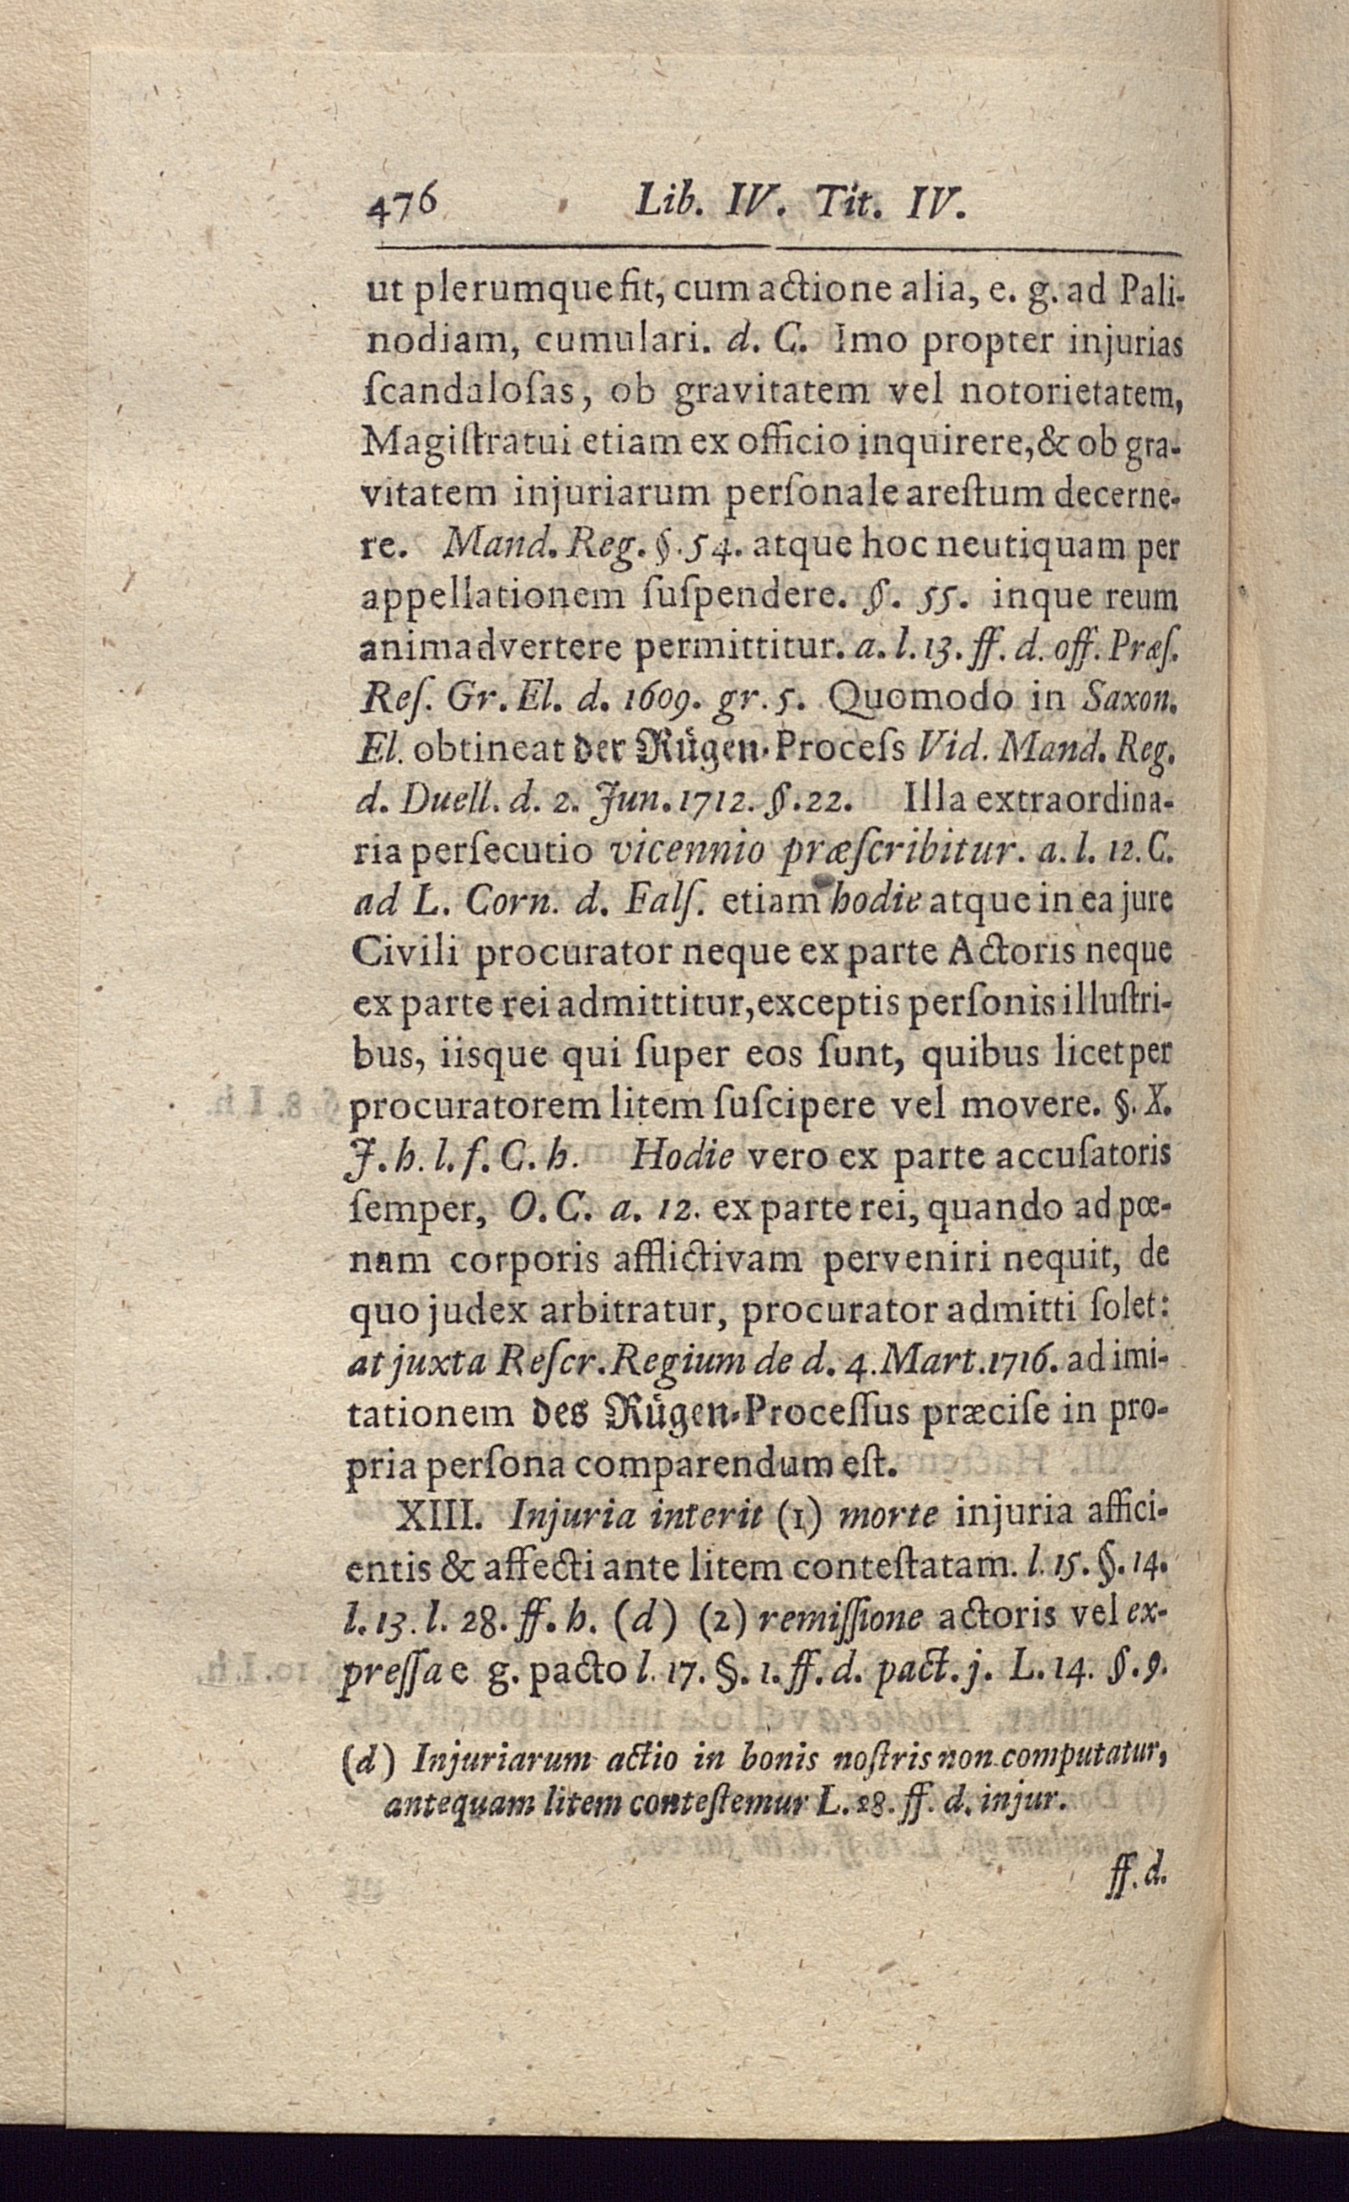 476 Lib. IV. Tit. IV.
ut plerumque fit, cum actione alia, e. g. ad Pali-
nodiam, cumulari. d. C. Imo propter injurias
ſcandaloſas, ob gravitatem vel notorietatem,
Magiſtratui etiam ex officio inquirere, & ob gra-
vitatem injuriarum perſonale areſtum decerne-
re. Mand. Reg. §. 54. atque hoc neutiquam per
appellationem ſuſpendere. §. 55. inque reum
animadvertere permittitur. a. l. 13. ff. d. off. Præſ.
Reſ. Gr. El. d. 1609. gr. 5. Quomodo in Saxon.
El. obtineat der Rügen-Proceſs Vid. Mand. Reg.
d. Duell. d. 2. Jun. 1712. §. 22. Illa extraordina-
ria perſecutio vicennio præſcribitur. a. l. 12. C.
ad L. Corn. d. Falſ. etiam hodie atque in ea jure
Civili procurator neque ex parte Actoris neque
ex parte rei admittitur, exceptis perſonis illuſtri-
bus, iisque qui ſuper eos ſunt, quibus licet per
procuratorem litem ſuſcipere vel movere. §. X.
J. h. l. f. C. h. Hodie vero ex parte accuſatoris
ſemper, O. C. a. 12. ex parte rei, quando ad pœ-
nam corporis afflictivam perveniri nequit, de
quo judex arbitratur, procurator admitti ſolet:
at juxta Reſcr. Regium de d. 4. Mart. 1716. ad imi-
tationem des Rügen-Proceſſus præciſe in pro-
pria perſona comparendum eſt.
XIII. Injuria interit (1) morte injuria affici-
entis & affecti ante litem conteſtatam. l. 15. §. 14.
l. 13. l. 28. ff. h. (d) (2) remiſſione actoris vel ex-
preſſa e g. pacto l. 17. §. 1. ff. d. pact. j. L. 14. §. 9.
(d) Injuriarum actio in bonis noſtris non computatur,
antequam litem conteſtemur L. 28. ff. d. injur.
ff. d.